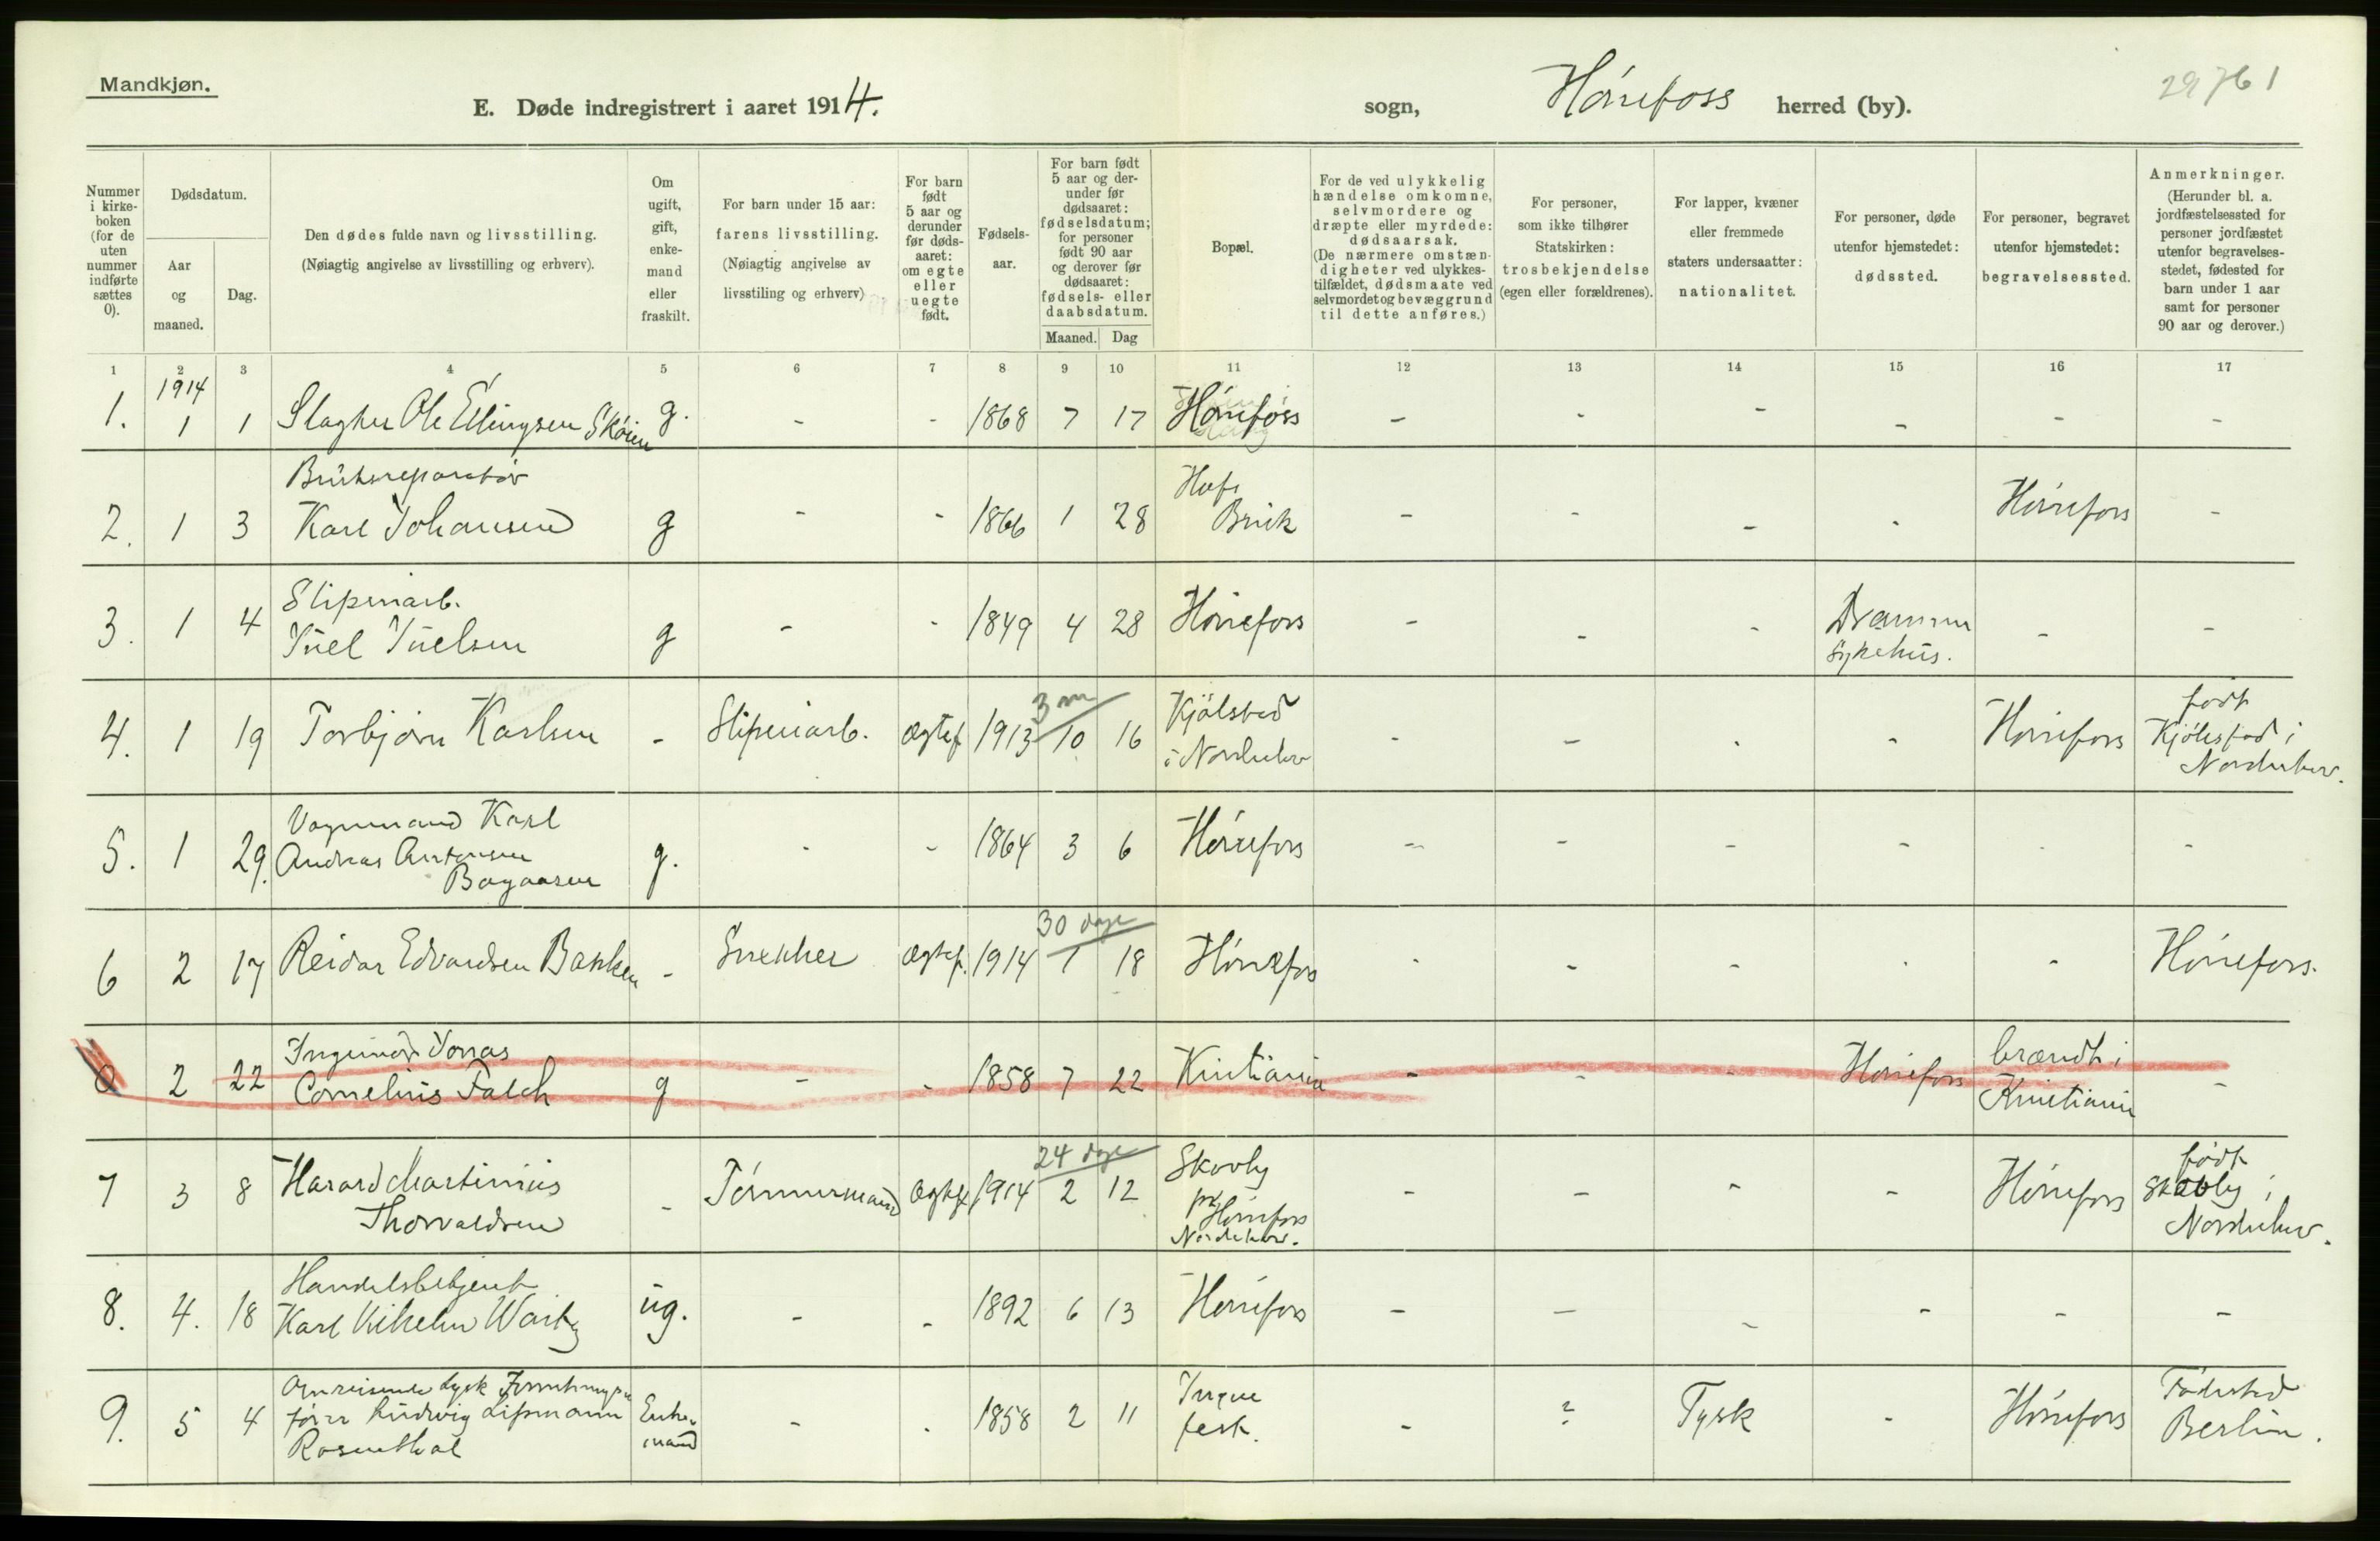 Mandkjøn.
E. Døde indregistrert i aaret 1914. sogn, Hønefoss herred (by).
29761
Nummer i kirke-boken (for de uten nummer indførte sættes 0).
Dødsdatum.
Aar og maaned.
Dag.
Den dødes fulde navn og livsstilling.
(Nøiagtig angivelse av livsstilling og erhverv).
Om ugift, gift, enke-mand eller fraskilt.
For barn under 15 aar: farens livsstilling. (Nøiagtig angivelse av livsstiling og erhverv)
For barn født 5 aar og derunder før døds-aaret: om egte eller uegte født.
Fødsels-aar.
For barn født 5 aar og der-under før dødsaaret: fødselsdatum; for personer født 90 aar og derover før dødsaaret: fødsels- eller daabsdatum.
Maaned. Dag
Bopæl.
For de ved ulykkelig hændelse omkomne, selvmordere og dræpte eller myrdede: dødsaarsak. (De nærmere omstæn-digheter ved ulykkes-tilfældet, dødsmaate ved selvmordet og bevæggrund til dette anføres.)
For personer, som ikke tilhører Statskirken: trosbekjendelse (egen eller forældrenes).
For lapper, kvæner eller fremmede staters undersaatter: nationalitet.
For personer, døde utenfor hjemstedet: dødssted.
For personer, begravet utenfor hjemstedet: begravelsessted.
Anmerkninger. (Herunder bl. a. jordfæstelsessted for personer jordfæstet utenfor begravelses-stedet, fødested for barn under 1 aar samt for personer 90 aar og derover.)
1 2 3 4 5 6 7 8 9 10 11 12 13 14 15 16 17
1914
1. 1 1 Slagter Ole Ellingsen Skøien g. - - 1868 7 17 Hønefoss - - - - - -
Karl Johansen
2. 1 3 g - - 1866 1 28 Hofs Bruk - - - - Hønefoss -
Sliperiarb.
3. 1 4 Juel Juelsen g - - 1849 4 28 Hønefoss - - - Drammen sykehus. - -
3 m
4. 1 19 Torbjørn Karlsen - Sliperiarb. Ægtef 1913 10 16 Kjølstad i Norderhov - - - - Hønefoss født Kjølstad i Norderhov.
Vognmand Karl
5. 1 29. Andreas Antonsen g. - - 1864 3 6 Hønefoss - - - - - -
30 dage
6 2 17 Reidar Edvardsen Bakken - Snekker Ægtef. 1914 1 18 Hønefoss - - - - - Hønefoss.
Ingeniør Jonas
0 2 22 Cornelius Falch g - - 1858 7 22 Kristiania - - - Hønefoss brændt i Kristiania -
24 dage
7 3 8 Harard Martinius Thorvaldsen - Tømmermand Ægtef 1914 2 12 Skovly pr Hønefoss Norderhov. - - - - Hønefoss født Skovly i Norderhov.
Handelsbetjent
8. 4. 18 Karl Vilhelm ug. - - 1892 6 13 Hønefoss - - - - - -
Omreisende tysk
9. 5 4 Ludvig Lipmann Enke-mand - - 1858 2 11 Ingen fast. - ? Tysk - Hønefoss Fødested Berlin.
Rosenthal